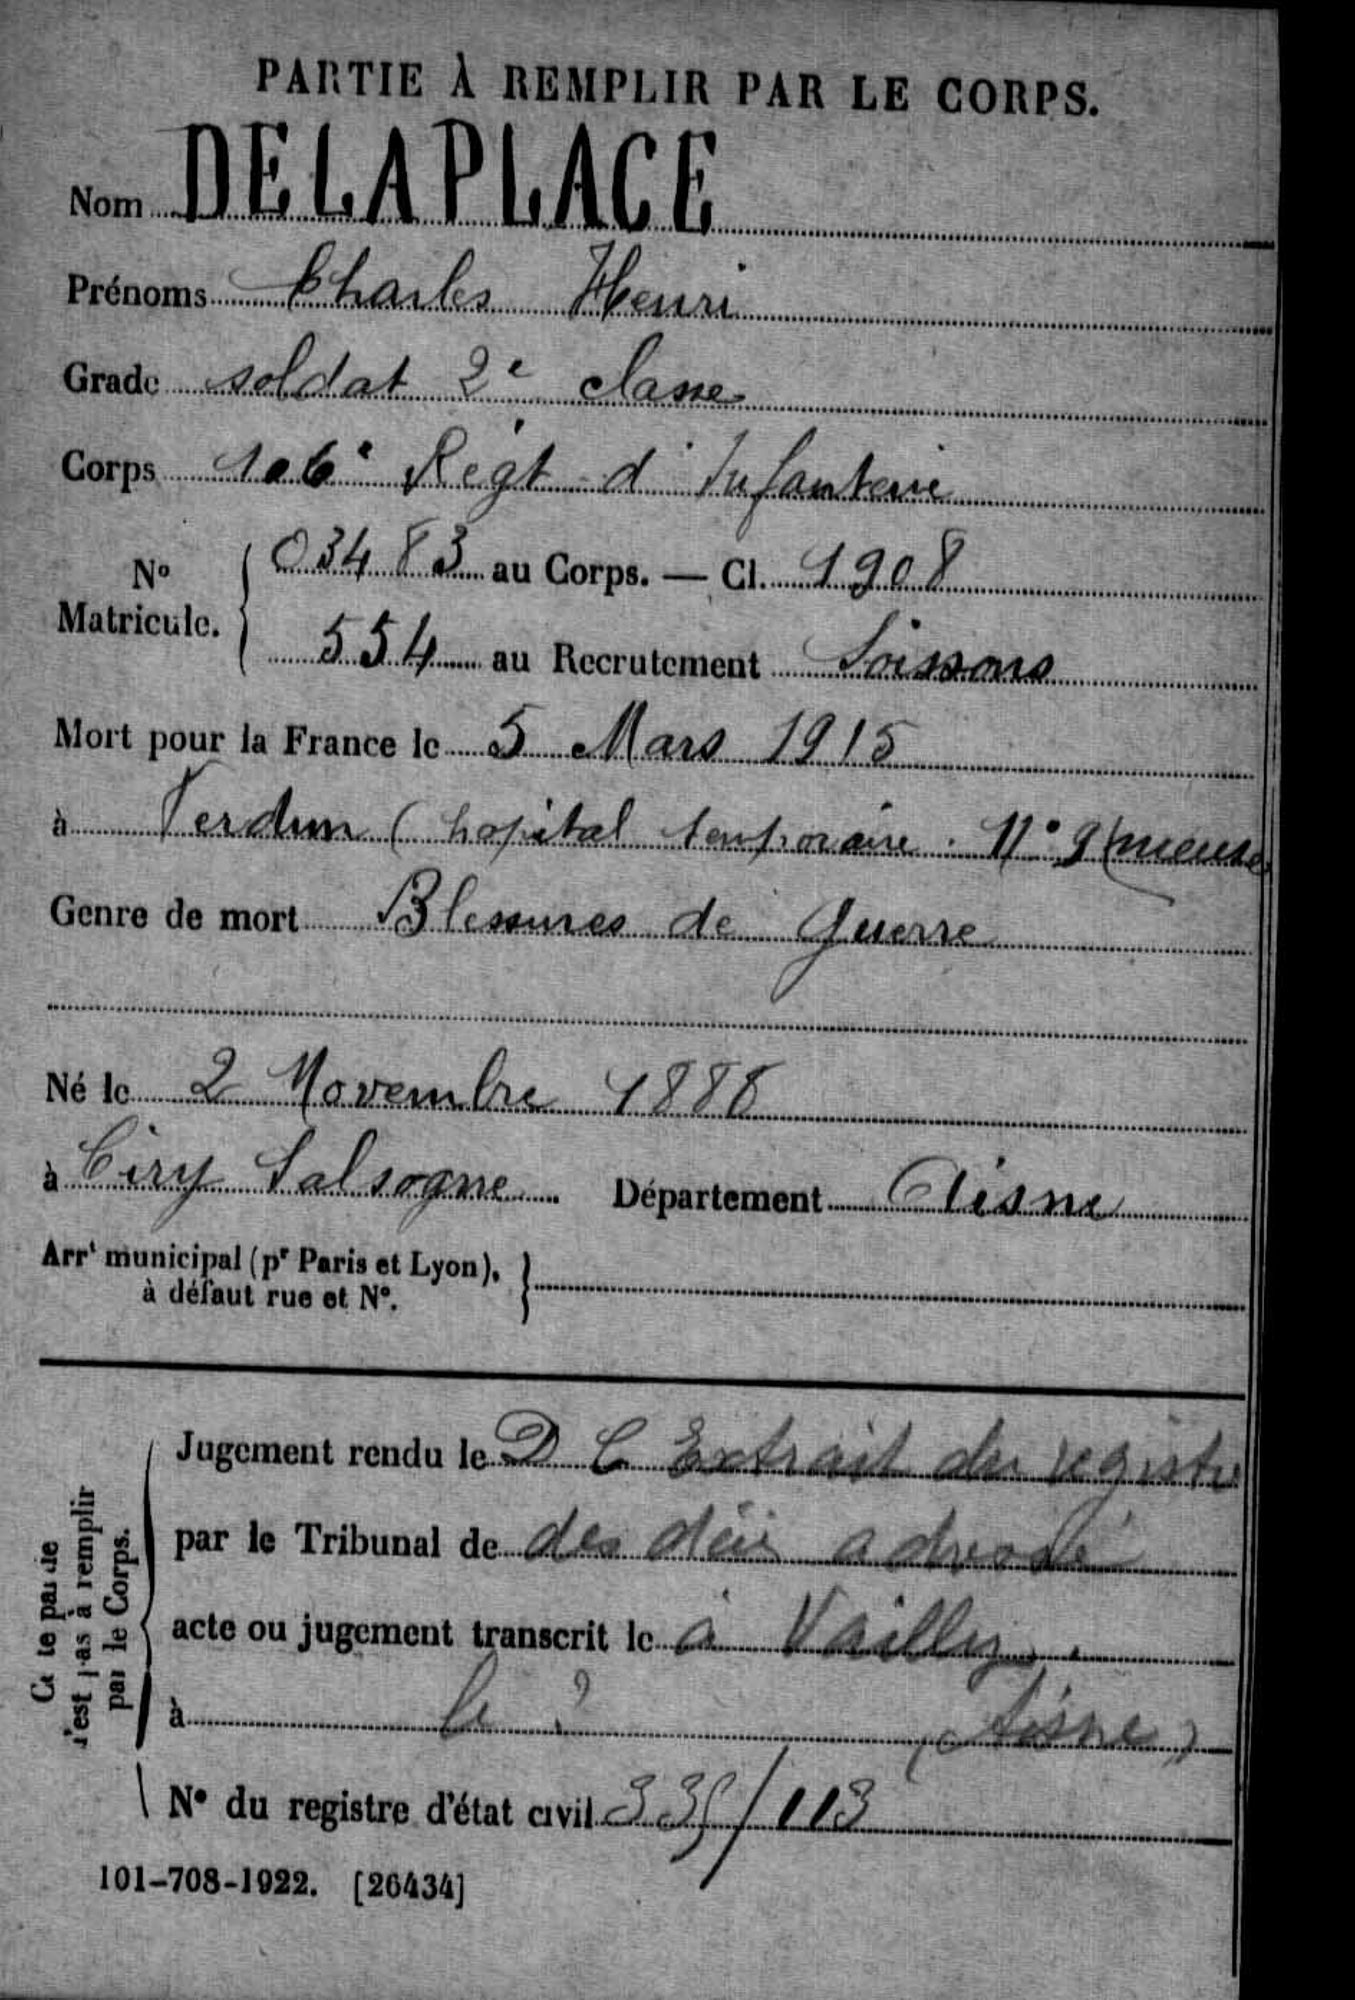 PARTIE À REMPLIR PAR LE CORPS.
Nom DELAPLACE
Prénoms Charles Henri
Grade soldat 2e classe
Corps 106e Régt d'Infanterie
N° Matricule. { 03483 au Corps. — Cl. 1908
554 au Recrutement Soissons
Mort pour la France le 5 Mars 1915
à Verdun (hopital temporaire N° 9 (meuse)
Genre de mort Blessures de guerre
Né le 2 Novembre 1888
à Ciry Salsogne Département Aisne
Arrt municipal (pr Paris et Lyon), à défaut rue et N°. }
Cette partie n'est pas à remplir par le Corps.
Jugement rendu le D C Extrait du registre
par le Tribunal de des décès adressé
acte ou jugement transcrit le à Vailly.
à le ? (Aisne)
N° du registre d'état civil 335/113
101-708-1922. [26434]